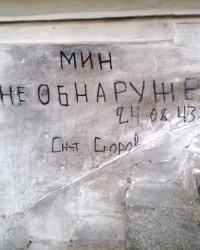 МИН
НЕ ОБНАРУЖЕ
24 08 43
Снт Егоров